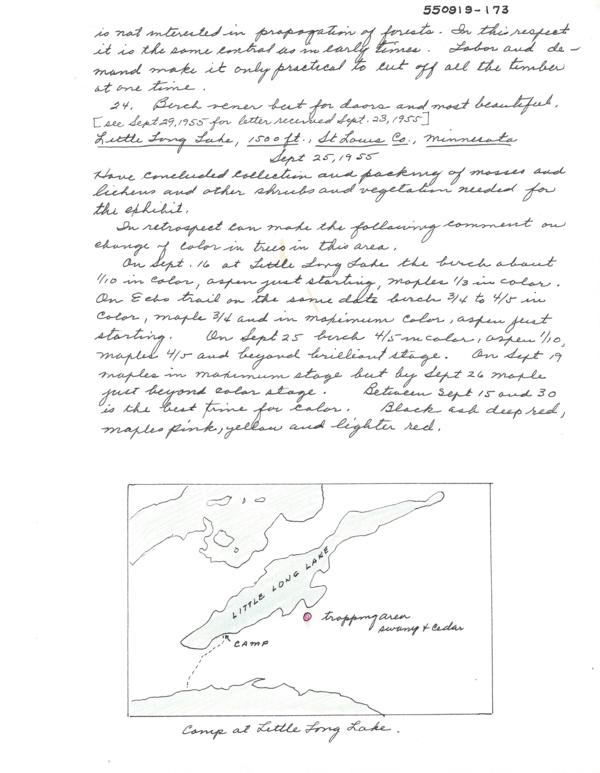 550919-173
is not interested in propagation of forests. In this respect
it is the same control as in early times. Labor and de-
mand make it only practical to cut off all the timber
at one time.
24. Birch vener best for doors and most beautiful.
[see Sept 29, 1955 for letter received Sept. 23, 1955]
Little Long Lake, 1500 ft., St Louis Co., Minnesota
Sept 25, 1955
Have concluded collection and packing of mosses and
lichens and other shrubs and vegetation needed for
the exhibit.
In retrospect can make the following comment on
change of color in trees in this area.
On Sept. 16 at Little Long Lake the birch about
1/10 in color, aspen just starting, maples 1/3 in color.
On Echo trail on the same date birch 3/4 to 4/5 in
color, maple 3/4 and in maximum color, aspen just
starting. On Sept 25 birch 4/5 in color, aspen 1/10,
maples 4/5 and beyond brilliant stage. On Sept 19
maples in maximum stage but by Sept 26 maple
just beyond color stage. Between Sept 15 and 30
is the best time for color. Black ash deep red,
maples pink, yellow and lighter red.
LITTLE LONG LAKE
trapping area
swamp & cedar
CAMP
Camp at Little Long Lake.